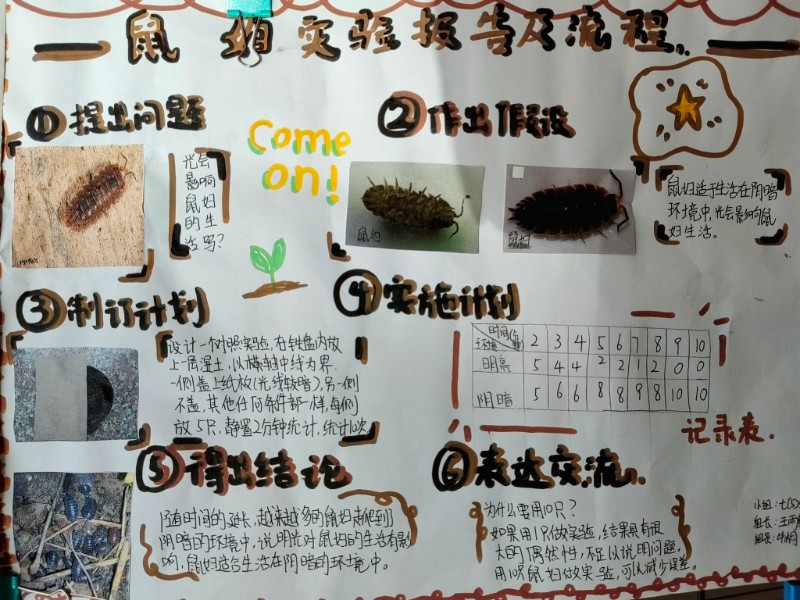 鼠妇实验报告及流程
①提出问题
光会
影响
鼠妇
的生
活吗?
Come
on!
②作出假设
鼠妇
鼠妇
鼠妇适于生活在阴暗
环境中,光会影响鼠
妇生活。
③制订计划
设计一个对照实验,在铁盘内放
上一层湿土,以横轴中线为界.
一侧盖上纸板(光线较暗),另一侧
不盖,其他任何条件都一样,每侧
放5只,静置2分钟统计,统计10次
④实施计划
时间
环境 2 3 4 5 6 7 8 9 10
明亮 5 4 4 2 2 1 2 0 0
阴暗 5 6 6 8 8 9 8 10 10
记录表.
⑤得出结论
随时间的延长,越来越多的鼠妇都爬到
阴暗的环境中,说明光对鼠妇的生活有影
响,鼠妇适合生活在阴暗的环境中。
⑥表达交流.
为什么要用10只?
如果用1只做实验,结果具有很
大的偶然性,不足以说明问题.
用10只鼠妇做实验,可以减少误差。
小组:七
组长:王
组员: